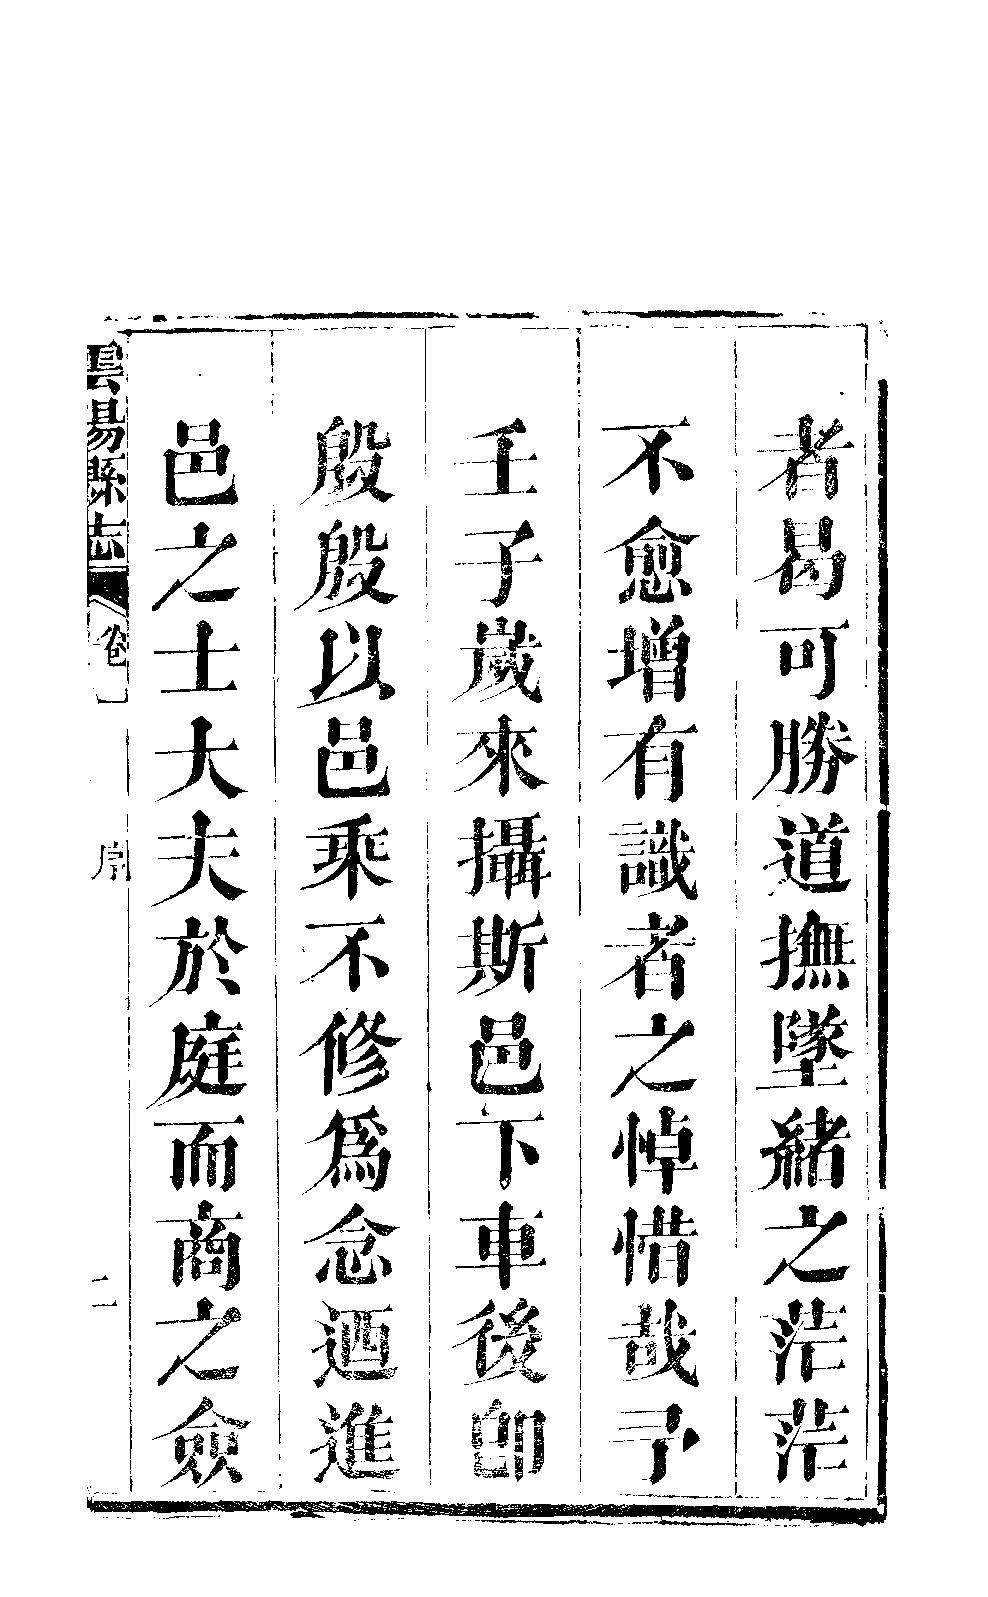 者曷可勝道撫墜緒之茫茫
不愈增有識者之悼惜哉予
壬子歲來攝斯邑下車後即
殷殷以邑乘不修爲念迺進
邑之士大夫於庭而商之僉
雲陽縣志
卷一
序
二